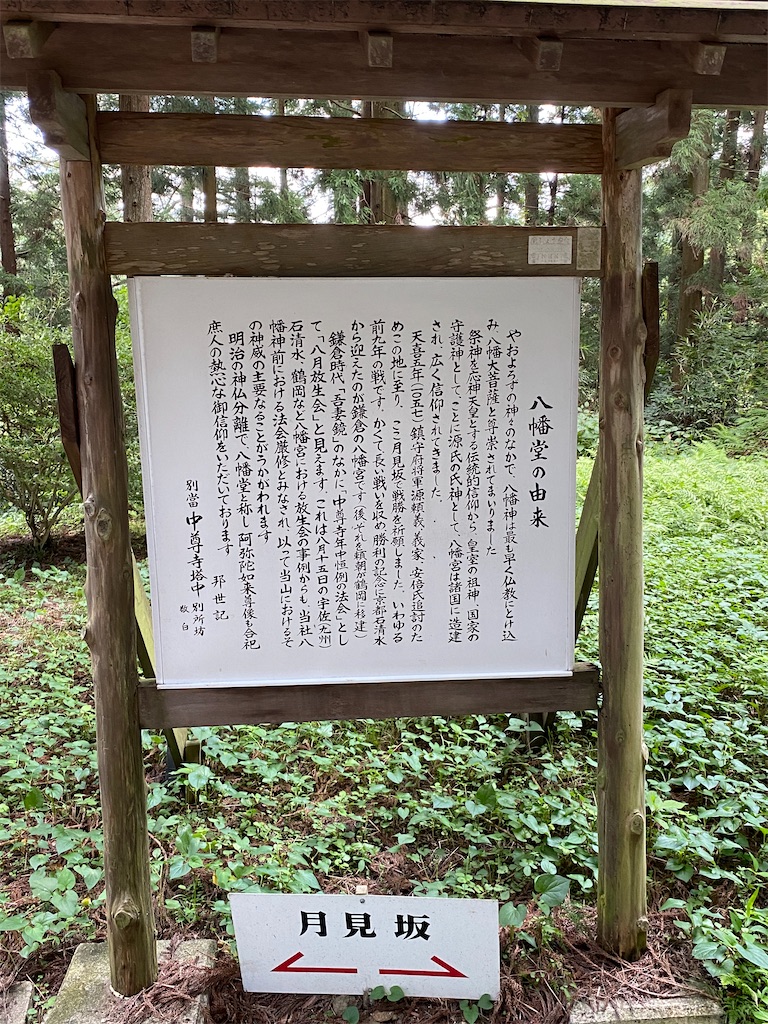 八幡堂の由来
やおよろずの神々のなかで、八幡神は最も早く仏教にとけ込
み、八幡大菩薩と尊崇されてまいりました
祭神を応神天皇とする伝統的信仰から、皇室の祖神、国家の
守護神として、ことに源氏の氏神として、八幡宮は諸国に造建
され、広く信仰されてきました。
天喜五年(一〇五七)鎮守府将軍源頼義、義家、安倍氏追討のた
めこの地に至り、ここ月見坂で戦勝を祈願しました。いわゆる
前九年の戦です。かくて長い戦いを収め、勝利の記念に京都石清水
から迎えたのが鎌倉の八幡宮です(後、それを頼朝が鶴岡に移建)
鎌倉時代、「吾妻鏡」のなかに、中尊寺年中恒例の法会」とし
て「八月放生会」と見えます。これは八月十五日の宇佐(九州)
石清水、鶴岡など八幡宮における放生会の事例からも、当社八
幡神前における法会厳修とみなされ、以って当山におけるそ
の神威の主要なることがうかがわれます
明治の神仏分離で、八幡堂と称し、阿弥陀如来尊像も合祀
庶人の熱心な御信仰をいただいております
邦世記
別當 中尊寺塔中 別所坊
敬白
月見坂